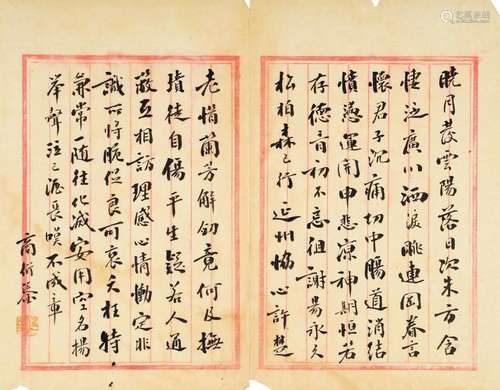 曉月發雲陽落日次朱方含
悽泛廣川洒淚眺連岡眷言
懷君子沉痛切中腸道消結
憤懣運開申悲涼神期恒若
存德音初不忘徂謝易永久
松柏森已行延州協心許楚
老惜蘭芳解劍竟何及撫
墳徒自傷平生疑若人通
蔽互相妨理感心情慟定非
識所將脆促良可哀夭枉特
兼常一隨往化滅安用空名揚
舉聲泣已瀝長嘆不成章
商衍鎏